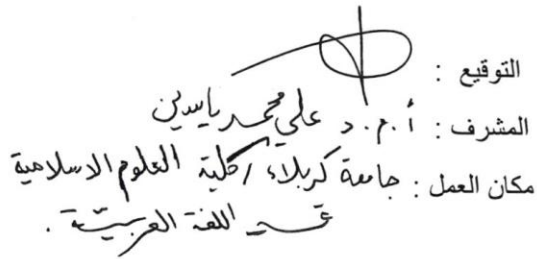 التوقيع :
المشرف : أ.م.د علي محمد ياسين
مكان العمل : جامعة كربلاء / كلية العلوم الاسلامية
قسم اللغة العربية .